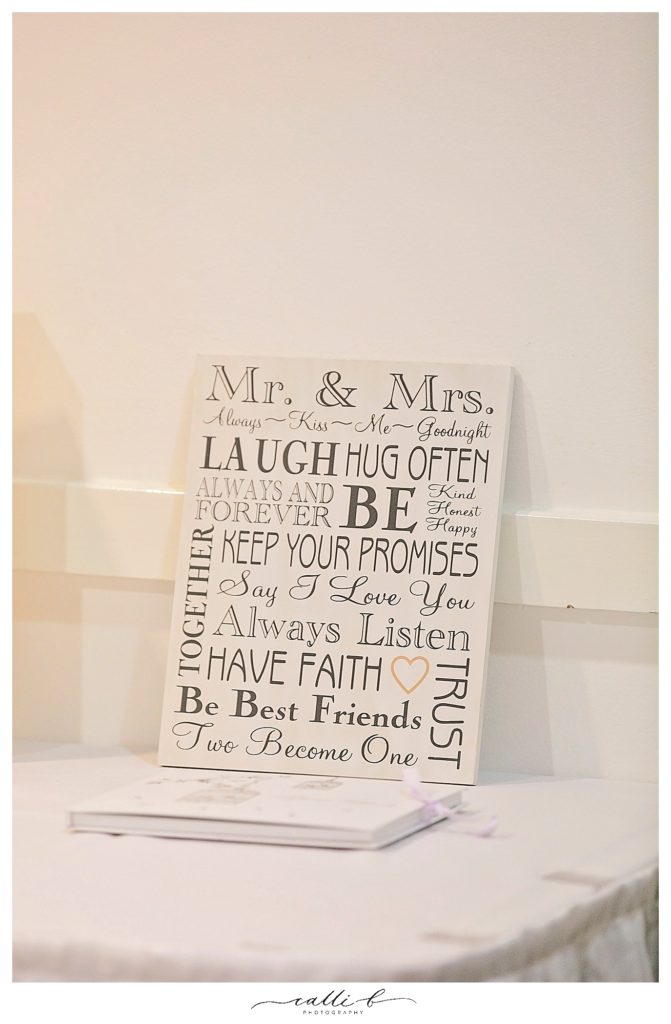 Mr. & Mrs.
Always~Kiss~Me~Goodnight
LAUGH HUG OFTEN
ALWAYS AND FOREVER
BE
Kind
Honest
Happy
TOGETHER
KEEP YOUR PROMISES
Say I Love You
Always Listen
HAVE FAITH
TRUST
Be Best Friends
Two Become One
calli b
PHOTOGRAPHY